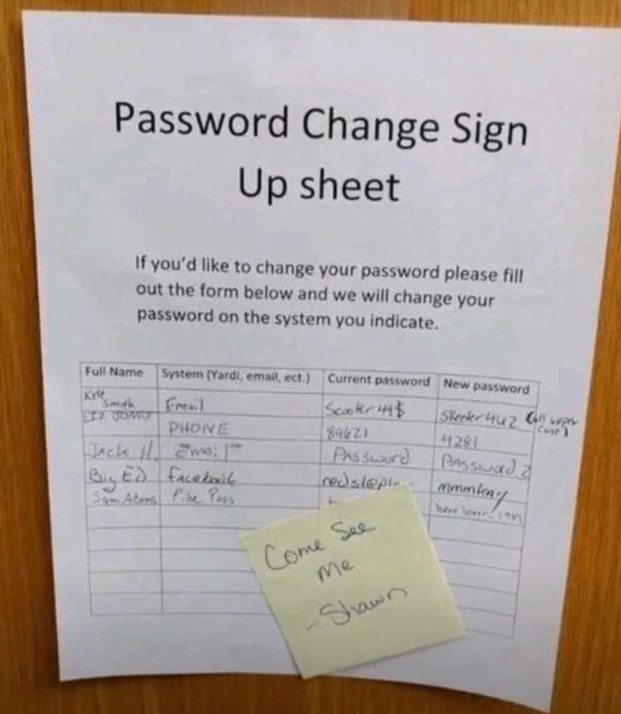 Password Change Sign
Up sheet
If you'd like to change your password please fill
out the form below and we will change your
password on the system you indicate.
Full Name System (Yardi, email, ect.) Current password New password
Kyle Smith Email Scooter 44$ Skeeter 4U2 (all upper case)
Liz Jones PHONE 89621 4281
Jack H. Email Password Password 2
Big Ed facebook
Sam Adams Pike Pass
Come See
me
-Shawn